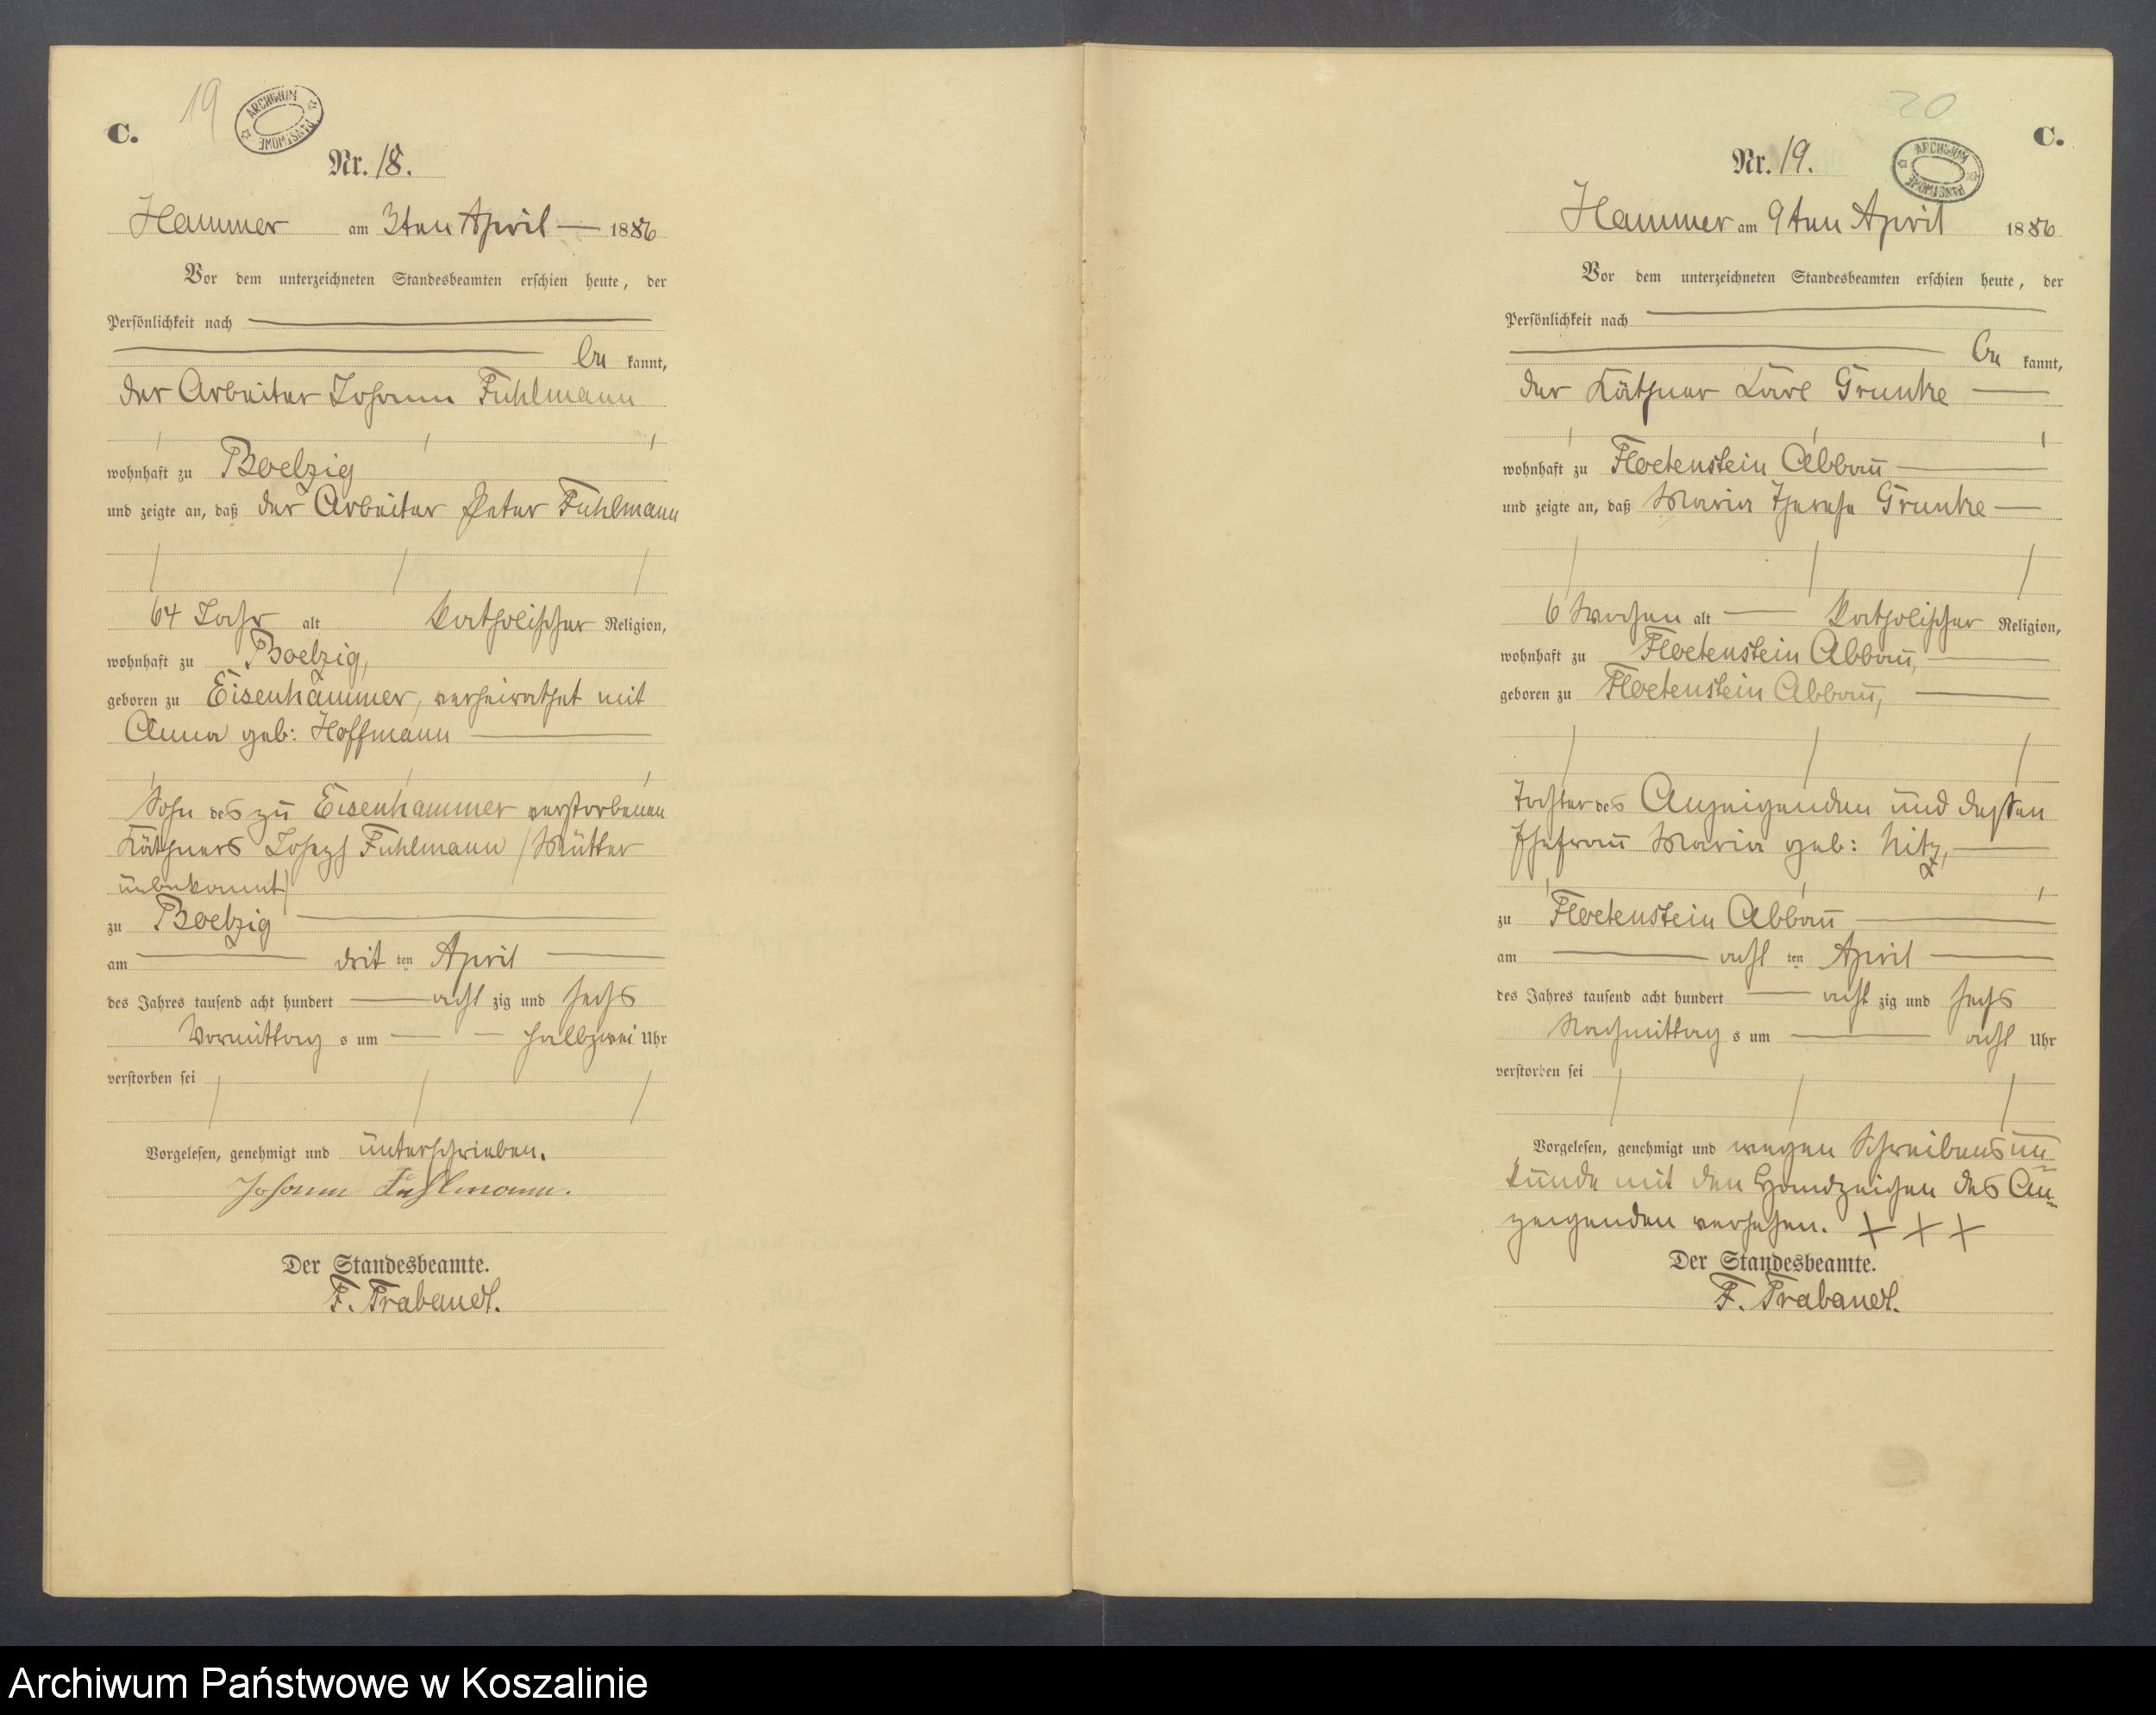 19
ARCHIWUM PAŃSTWOWE
C.
Nr. 18.
Hammer am 3ten April 1886
Vor dem unterzeichneten Standesbeamten erschien heute, der
Persönlichkeit nach
be kannt,
der Arbeiter Johann Fuhlmann
wohnhaft zu Boelzig
und zeigte an, daß der Arbeiter Peter Fuhlmann
64 Jahr alt katholischer Religion,
wohnhaft zu Boelzig,
geboren zu Eisenhammer, verheirathet mit
Anna geb: Hoffmann
Sohn des zu Eisenhammer verstorbenen
Käthners Joseph Fuhlmann /Mutter
unbekannt/
zu Boelzig
am drit ten April
des Jahres tausend acht hundert acht zig und sechs
Vormittag s um halbzwei Uhr
verstorben sei
Vorgelesen, genehmigt und unterschrieben.
Johann Fuhlmann.
Der Standesbeamte.
F. Trabandt.
20
C.
ARCHIWUM PAŃSTWOWE
Nr. 19.
Hammer am 9ten April 1886
Vor dem unterzeichneten Standesbeamten erschien heute, der
Persönlichkeit nach
be kannt,
der Käthner Karl Grunke
wohnhaft zu Floetenstein Abbau
und zeigte an, daß Maria Therese Grunke
6 Wochen alt katholischer Religion,
wohnhaft zu Floetenstein Abbau,
geboren zu Floetenstein Abbau,
Tochter des Anzeigenden und dessen
Ehefrau Maria geb: Nitz,
zu Floetenstein Abbau
am acht ten April
des Jahres tausend acht hundert acht zig und sechs
Nachmittag s um acht Uhr
verstorben sei
Vorgelesen, genehmigt und wegen Schreibensun=
kunde mit den Handzeichen des An=
zeigenden versehen. + + +
Der Standesbeamte.
F. Trabandt.
Archiwum Państwowe w Koszalinie